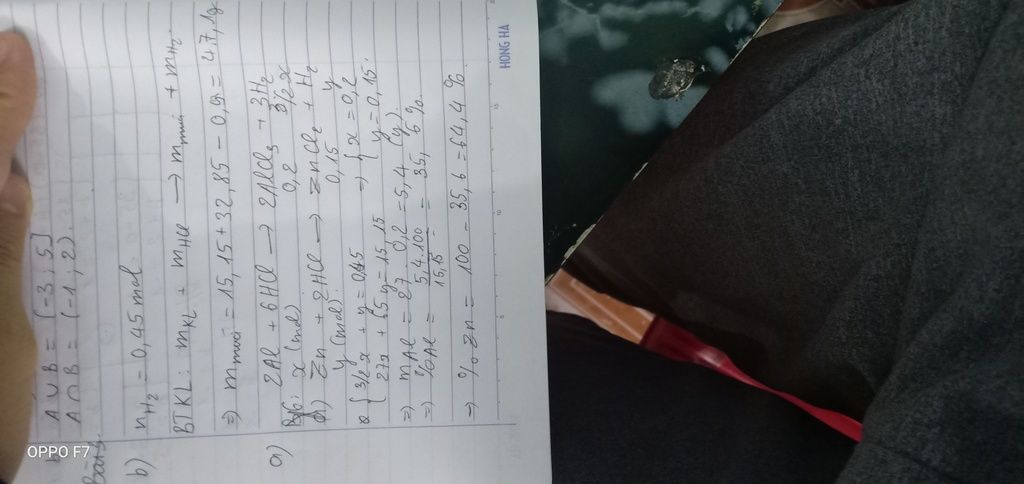 A ∪ B = (-3; 5]
A ∩ B = (-1; 2)
b) nH2 = 0,45 mol
BTKL: mKL + mHCl → mmuối + mH2
=) mmuối = 15,15 + 32,85 - 0,9 = 47,1g
a) 2Al + 6HCl → 2AlCl3 + 3H2
x (mol) 0,2 3/2x
Zn + 2HCl → ZnCl2 + H2
y (mol) 0,15 y
{ 3/2x + y = 0,45 =) { x = 0,2
27x + 65y = 15,15 y = 0,15.
=) mAl = 27. 0,2 = 5,4 (g)
=) %Al = 5,4.100/15,15 = 35,6 %.
=) % Zn = 100 - 35,6 = 64,4 %
HONG HA
OPPO F7